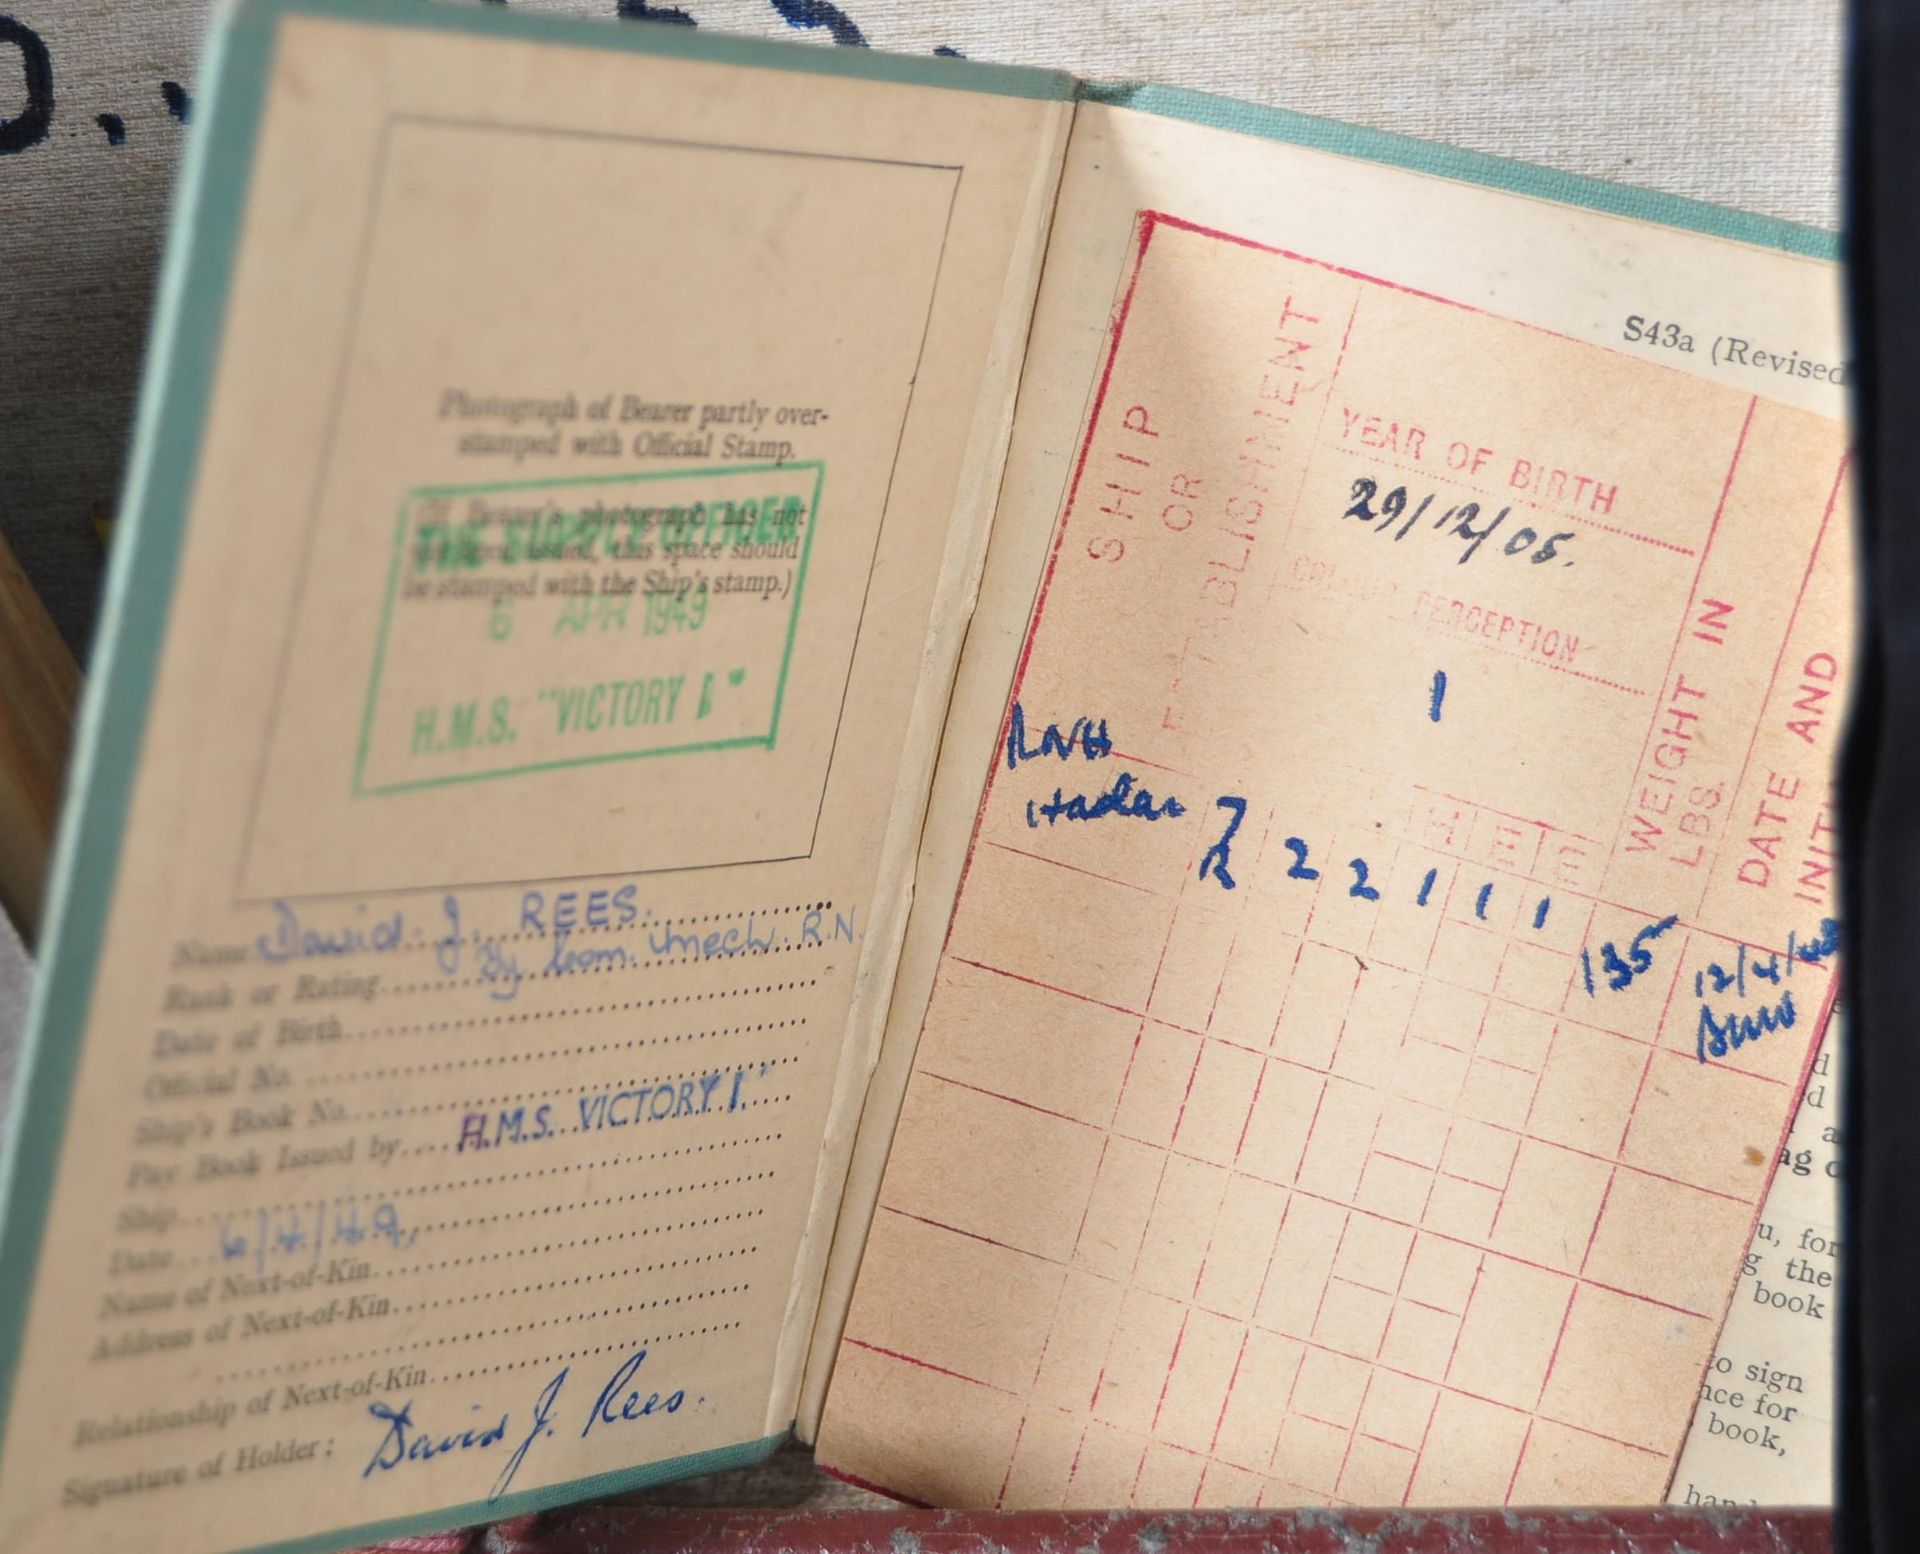 Photograph of Bearer partly over-
stamped with Official Stamp.
(If Bearer's photograph has not
yet been issued, this space should
be stamped with the Ship's stamp.)
THE SUPPLY OFFICER
6 APR 1949
H.M.S. "VICTORY I"
Name David J. REES.
Rank or Rating Ty Com. Mech. R.N.
Date of Birth
Official No.
Ship's Book No.
Pay Book Issued by H.M.S. VICTORY I"
Ship
Date 6/4/49.
Name of Next-of-Kin
Address of Next-of-Kin
Relationship of Next-of-Kin
Signature of Holder: David J. Rees.
S43a (Revised
SHIP
OR
ESTABLISHMENT
YEAR OF BIRTH
29/12/05.
COLOUR PERCEPTION
1
WEIGHT IN
LBS.
DATE AND
RNH
H E M
2 2 2 1 1 1 135 12/4/48
d
ag
u, for
g the
book
to sign
nce for
book,